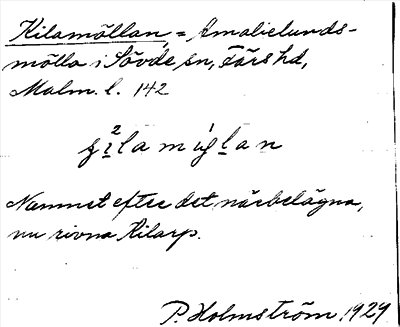 Kilamöllan, = Amalielunds-
mölla i Sövde sn, Färs hd,
Malm. l. 142
Namnet efter det närbelägna,
nu rivna Kilarp.
P. Holmström 1929